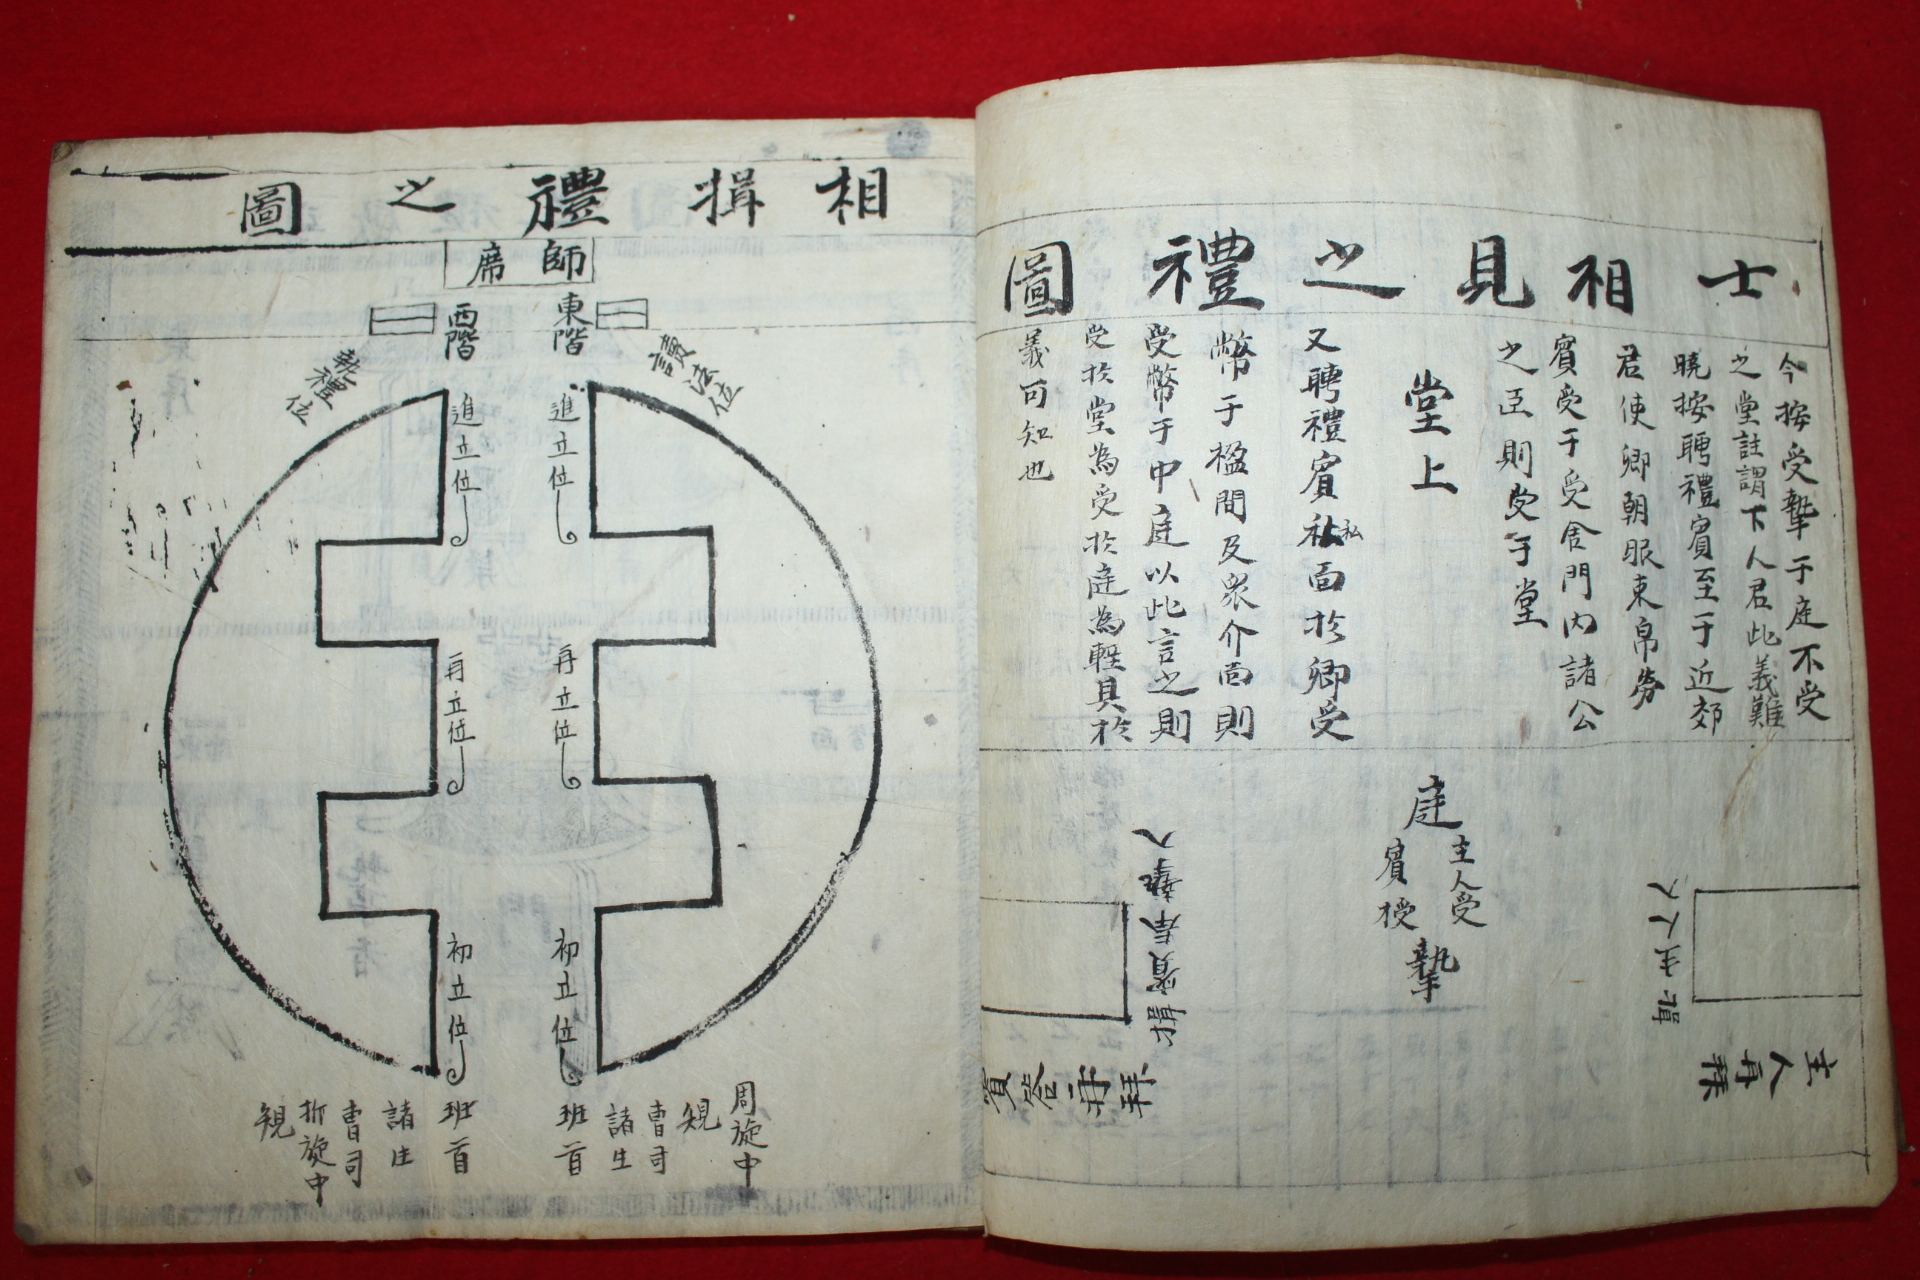 士相見之禮圖
今按受摯于庭不受
之堂註謂下人君此義難
曉按聘禮賓至于近郊
君使卿朝服束帛勞
賓受于受舍門內諸公
之臣則受于堂
堂上
又聘禮賓私面於卿受
私
幣于楹間及眾介面則
受幣于中庭以此言之則
受於堂為受於庭為輕具於
義可知也
庭
主人受
賓授
摯
入下主揖
主人再拜
揖賓奉摯入
賓答再拜
相揖禮之圖
師席
東階
西階
讀法位
執禮位
進立位
進立位
再立位
再立位
初立位
初立位
周旋中
規
曹司
諸生
班首
班首
諸生
曹司
折旋中
規